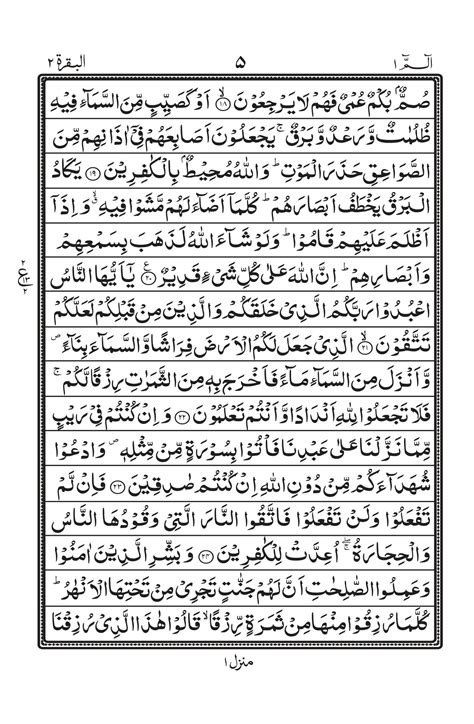 الٓمّٓ ١ ٥ البقرة ٢
صُمٌّۢ بُكْمٌ عُمْیٌ فَهُمْ لَا یَرْجِعُوْنَۙ ۝۱۸ اَوْ كَصَیِّبٍ مِّنَ السَّمَآءِ فِیْهِ
ظُلُمٰتٌ وَّ رَعْدٌ وَّ بَرْقٌۚ یَجْعَلُوْنَ اَصَابِعَهُمْ فِیْۤ اٰذَانِهِمْ مِّنَ
الصَّوَاعِقِ حَذَرَ الْمَوْتِؕ وَ اللّٰهُ مُحِیْطٌۢ بِالْكٰفِرِیْنَ ۝۱۹ یَكَادُ
الْبَرْقُ یَخْطَفُ اَبْصَارَهُمْؕ كُلَّمَاۤ اَضَآءَ لَهُمْ مَّشَوْا فِیْهِۙۗ وَ اِذَاۤ
اَظْلَمَ عَلَیْهِمْ قَامُوْاؕ وَ لَوْ شَآءَ اللّٰهُ لَذَهَبَ بِسَمْعِهِمْ
وَ اَبْصَارِهِمْؕ اِنَّ اللّٰهَ عَلٰی كُلِّ شَیْءٍ قَدِیْرٌ ۝۲۰ یٰۤاَیُّهَا النَّاسُ
اعْبُدُوْا رَبَّكُمُ الَّذِیْ خَلَقَكُمْ وَ الَّذِیْنَ مِنْ قَبْلِكُمْ لَعَلَّكُمْ
تَتَّقُوْنَۙ ۝۲۱ الَّذِیْ جَعَلَ لَكُمُ الْاَرْضَ فِرَاشًا وَّ السَّمَآءَ بِنَآءً۪
وَّ اَنْزَلَ مِنَ السَّمَآءِ مَآءً فَاَخْرَجَ بِهٖ مِنَ الثَّمَرٰتِ رِزْقًا لَّكُمْۚ
فَلَا تَجْعَلُوْا لِلّٰهِ اَنْدَادًا وَّ اَنْتُمْ تَعْلَمُوْنَ ۝۲۲ وَ اِنْ كُنْتُمْ فِیْ رَیْبٍ
مِّمَّا نَزَّلْنَا عَلٰی عَبْدِنَا فَاْتُوْا بِسُوْرَةٍ مِّنْ مِّثْلِهٖ۪ وَ ادْعُوْا
شُهَدَآءَكُمْ مِّنْ دُوْنِ اللّٰهِ اِنْ كُنْتُمْ صٰدِقِیْنَ ۝۲۳ فَاِنْ لَّمْ
تَفْعَلُوْا وَ لَنْ تَفْعَلُوْا فَاتَّقُوا النَّارَ الَّتِیْ وَ قُوْدُهَا النَّاسُ
وَ الْحِجَارَةُ ۖۚ اُعِدَّتْ لِلْكٰفِرِیْنَ ۝۲۴ وَ بَشِّرِ الَّذِیْنَ اٰمَنُوْا
وَ عَمِلُوا الصّٰلِحٰتِ اَنَّ لَهُمْ جَنّٰتٍ تَجْرِیْ مِنْ تَحْتِهَا الْاَنْهٰرُؕ
كُلَّمَا رُزِقُوْا مِنْهَا مِنْ ثَمَرَةٍ رِّزْقًاۙ قَالُوْا هٰذَا الَّذِیْ رُزِقْنَا
منزل ١